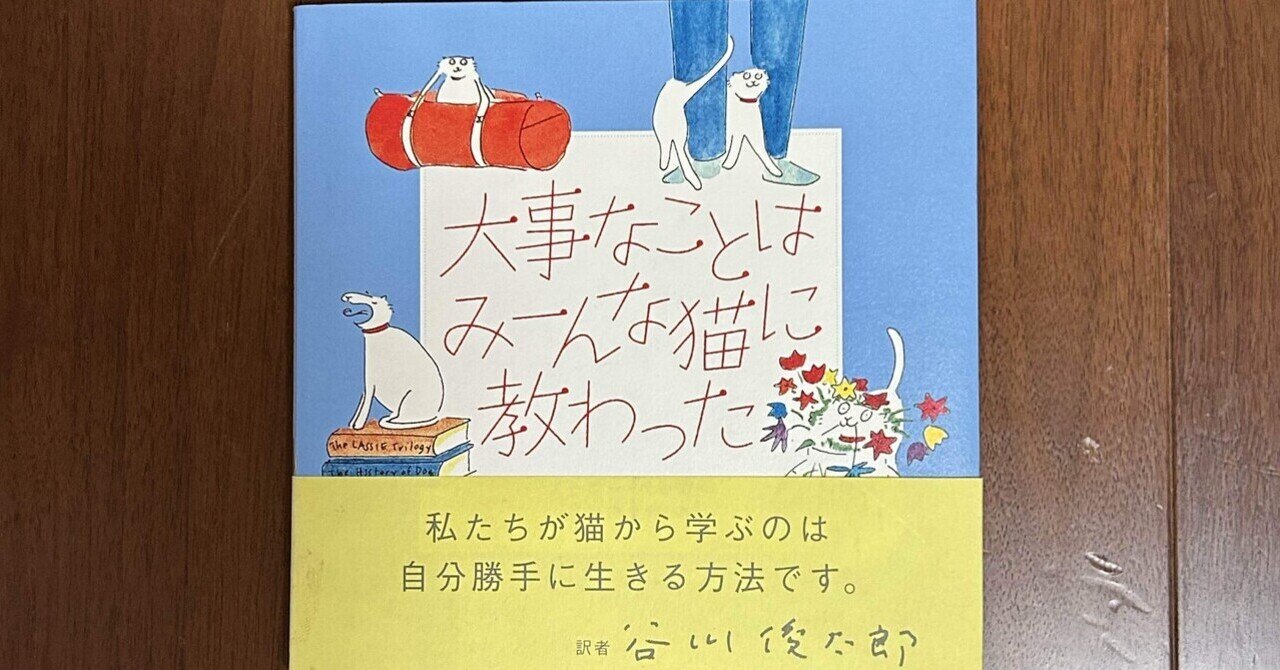 大事なことは
みーんな猫に
教わった
The LASSIE Trilogy
the History of Dog
私たちが猫から学ぶのは
自分勝手に生きる方法です。
訳者 谷川俊太郎